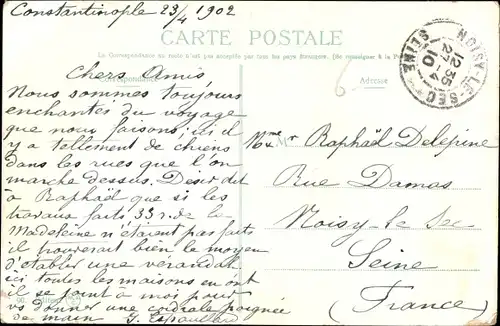 Constantinople 23/4 1902
CARTE POSTALE
La Correspondance au recto n'est pas acceptée par tous les pays étrangers. (Se renseigner à la Poste)
Correspondance
Adresse
6
NOISY-LE-SEC
SEINE
12 35
27 -4
10
Chers Amis
Nous sommes toujours
enchantés du voyage
que nous faisons, ici il
y a tellement de chiens
dans les rues que l'on
marche dessus. Désir dit
à Raphaël que si les
travaux faits 33 r. de la
Madeleine n'étaient pas faits
il trouverait bien le moyen
d'établir une vérandah
ici toutes les maisons en ont
il se joint à moi pour
vs donner une cordiale poignée
de main
Raphaël Delépine
Rue Damas
Noisy-le Sec
Seine
(France)